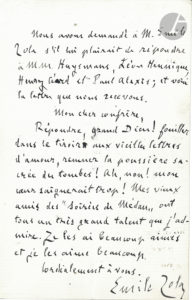 Nous avons demandé à M. Emile
Zola s'il lui plairait de répondre
à MM. Huysmans, Léon Hennique,
Henry Céard et Paul Alexis; et voici
la lettre que nous recevons.
Mon cher confrère,
Répondre, grand Dieu! fouiller
dans le tiroir aux vieilles lettres
d'amour, remuer la poussière sa-
crée des tombes! Ah, non! mon
cœur saignerait trop! Mes vieux
amis des "Soirées de Médan," ont
tous un très grand talent que j'ad-
mire. Je les ai beaucoup aimés
et je les aime beaucoup.
Cordialement à vous.
Emile Zola